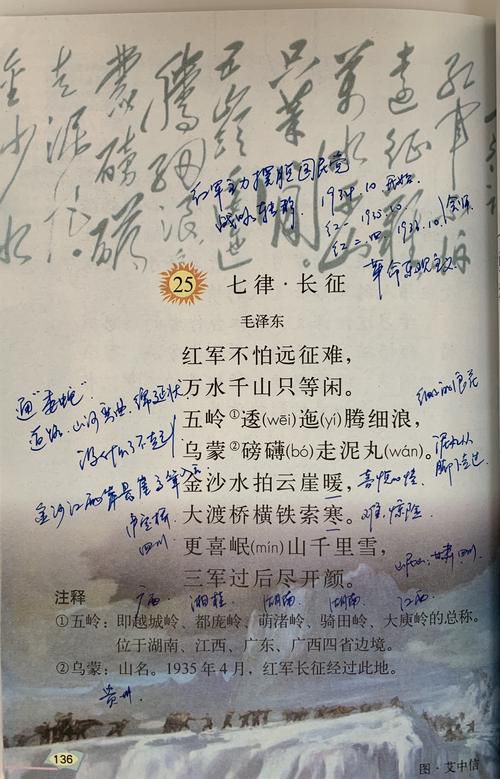 红军主力摆脱国民党
战略转移 1934.10 开始
红一 1935.10
红二、四 1936.10 会师
革命乐观主义
25 七律·长征
毛泽东
红军不怕远征难，
万水千山只等闲。
五岭①逶(wēi)迤(yí)腾细浪，
乌蒙②磅礴(bó)走泥丸(wán)。
金沙水拍云崖暖，
大渡桥横铁索寒。
更喜岷(mín)山千里雪，
三军过后尽开颜。
通“委蛇”
道路、山河弯曲，绵延状
没什么了不起
金沙江两岸悬崖
泸定桥
四川
细的浪花
泥丸从
脚下
喜悦心情
难、惊险
岷山：甘肃四川
注释
广西 湘桂 湖南 湖南 江西
①五岭：即越城岭、都庞岭、萌渚岭、骑田岭、大庾岭的总称。
位于湖南、江西、广东、广西四省边境。
②乌蒙：山名。1935年4月，红军长征经过此地。
贵州
136
图·艾中信